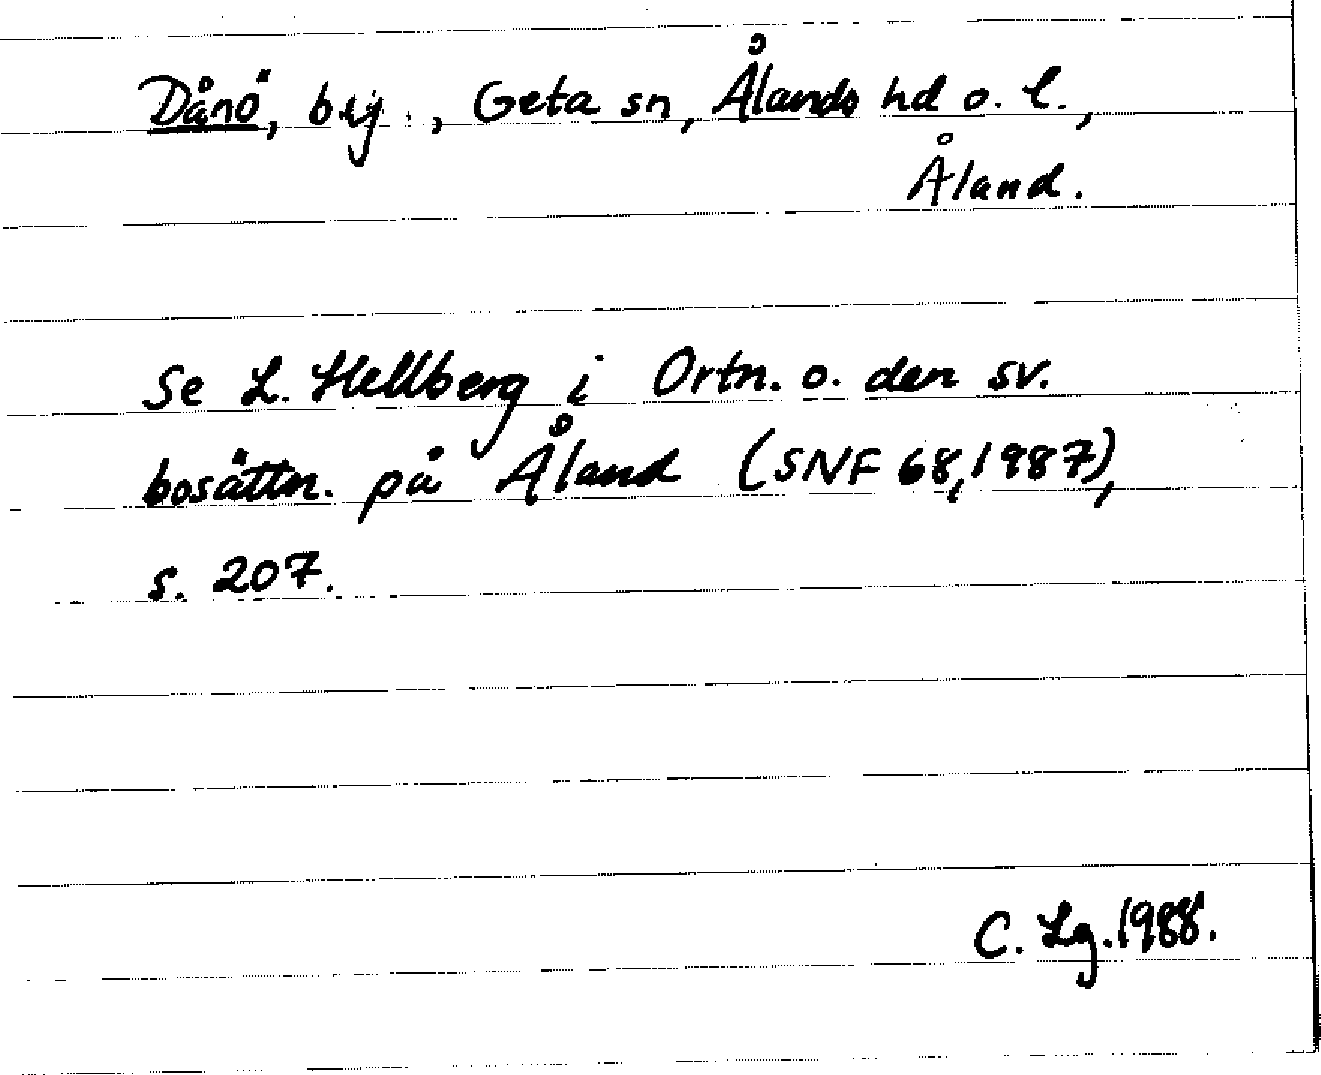 Dånö, by., Geta sn, Ålands hd o. l.,
Åland.
Se L. Hellberg i Ortn. o. den sv.
bosättn. på Åland (SNF 68, 1987),
s. 207.
C. Lg. 1988.